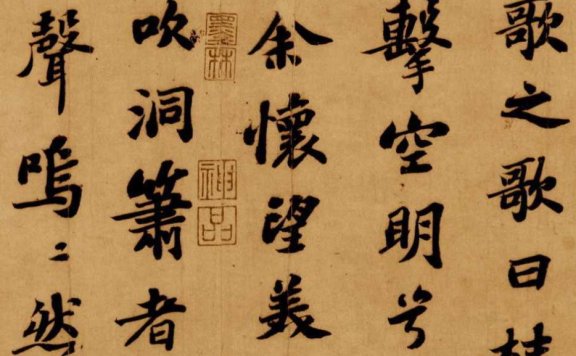 歌之歌曰桂
擊空明兮
余懷望美
墨林
神品
吹洞簫者
聲嗚〻然